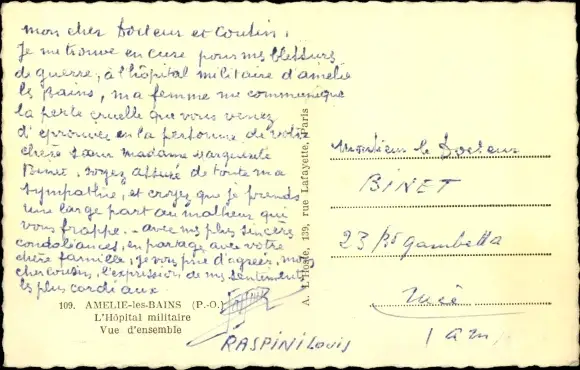 mon cher Docteur et Cousin,
Je me trouve en cure pour mes blessures
de guerre, à l'hôpital militaire d'amelie
les Bains, ma femme me communique
la perte cruelle que vous venez
d'éprouver en la personne de votre
chère sœur madame Marguerite
Binet. Soyez assuré de toute ma
sympathie, et croyez que je prends
une large part au malheur qui
vous frappe. - avec mes plus sincères
condoléances, en partage avec votre
chère famille, je vous prie d'agréer, mon
cher cousin, l'expression de mes sentiments
les plus cordiaux.
109. AMELIE-les-BAINS (P.-O.)
L'Hôpital militaire
Vue d'ensemble
RASPINI Louis
A. L'Hoste, 139, rue Lafayette, Paris
Monsieur le Docteur
BINET
23 Gambetta
Nice
A M